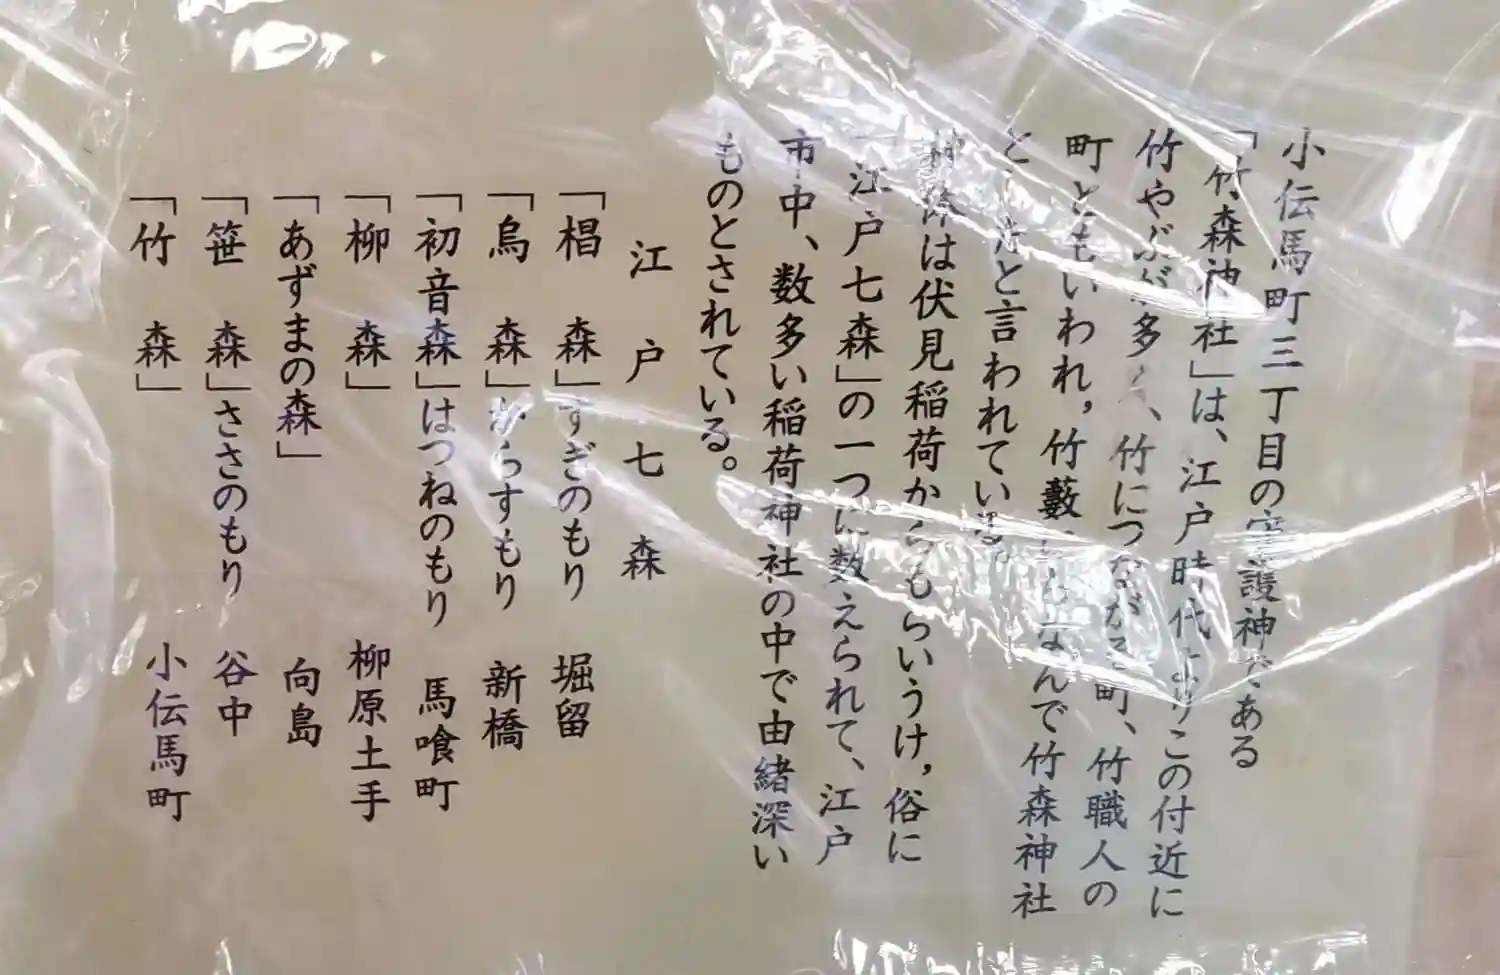 小伝馬町三丁目の守護神である
「竹森神社」は、江戸時代よりこの付近に
竹やぶが多く、竹につながる町、竹職人の
町ともいわれ，竹藪にちなんで竹森神社
としたと言われている。
は伏見稲荷からもらいうけ，俗に
「江戸七森」の一つに数えられて、江戸
市中、数多い稲荷神社の中で由緒深い
ものとされている。
江戸七森
「椙森」すぎのもり 堀留
「烏森」からすもり 新橋
「初音森」はつねのもり 馬喰町
「柳森」 柳原土手
「あずまの森」 向島
「笹森」ささのもり 谷中
「竹森」 小伝馬町